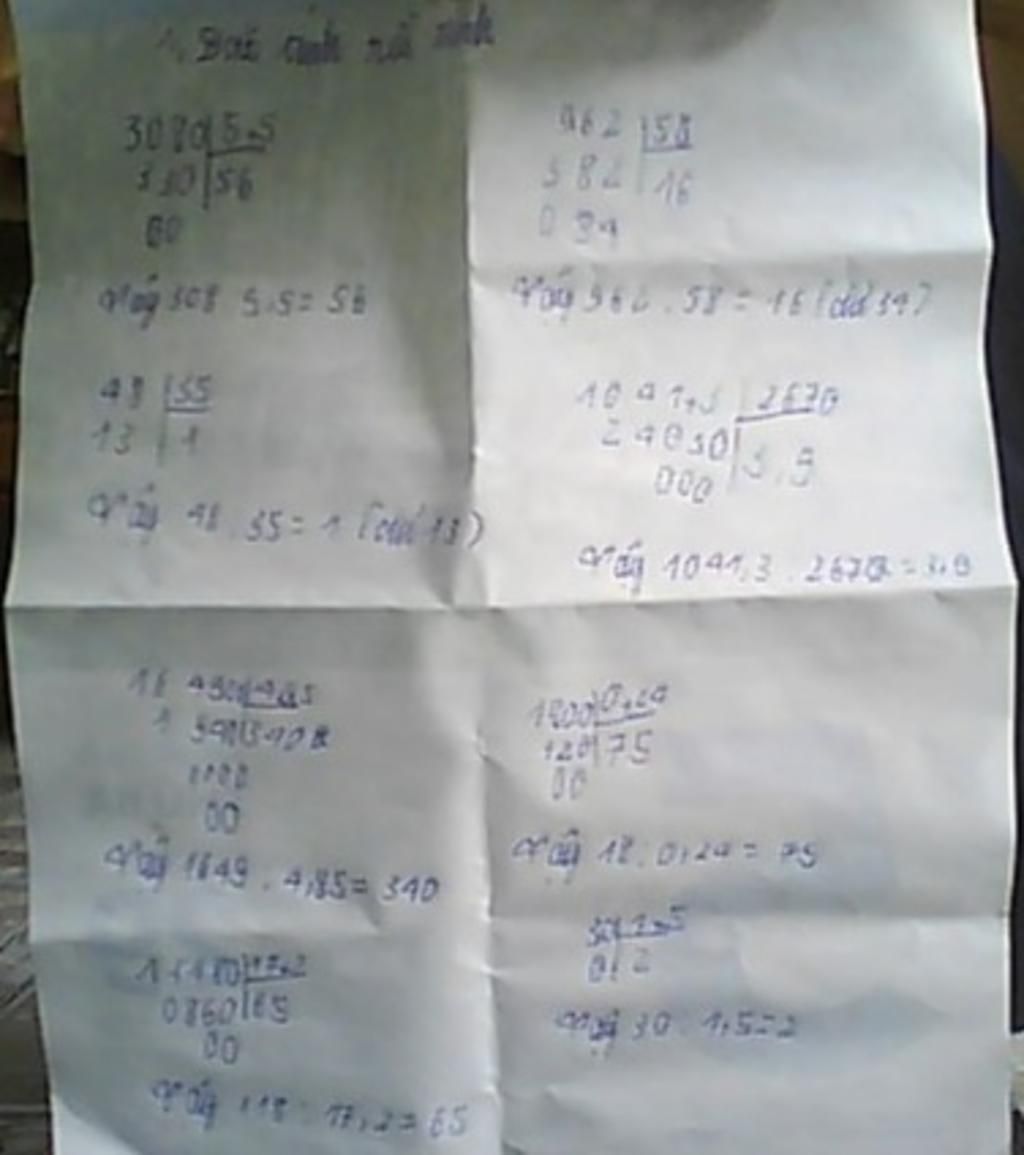 1. Đặt tính rồi tính
3080 5,5
330 56
00
Vậy 308 : 5,5 = 56
962 58
382 16
0 34
Vậy 962 : 58 = 16 (dư 34)
48 35
13 1
Vậy 48 : 35 = 1 (dư 13)
1041,3 2670
24030 3,9
000
Vậy 1041,3 : 2670 = 3,9
340
00
Vậy 1649 : 4,85 = 340
1800 0,24
120 75
00
Vậy 18 : 0,24 = 75
17,2
0860 65
00
Vậy 118 : 17,2 = 65
1,5
0 2
Vậy 30 : 1,5 = 2